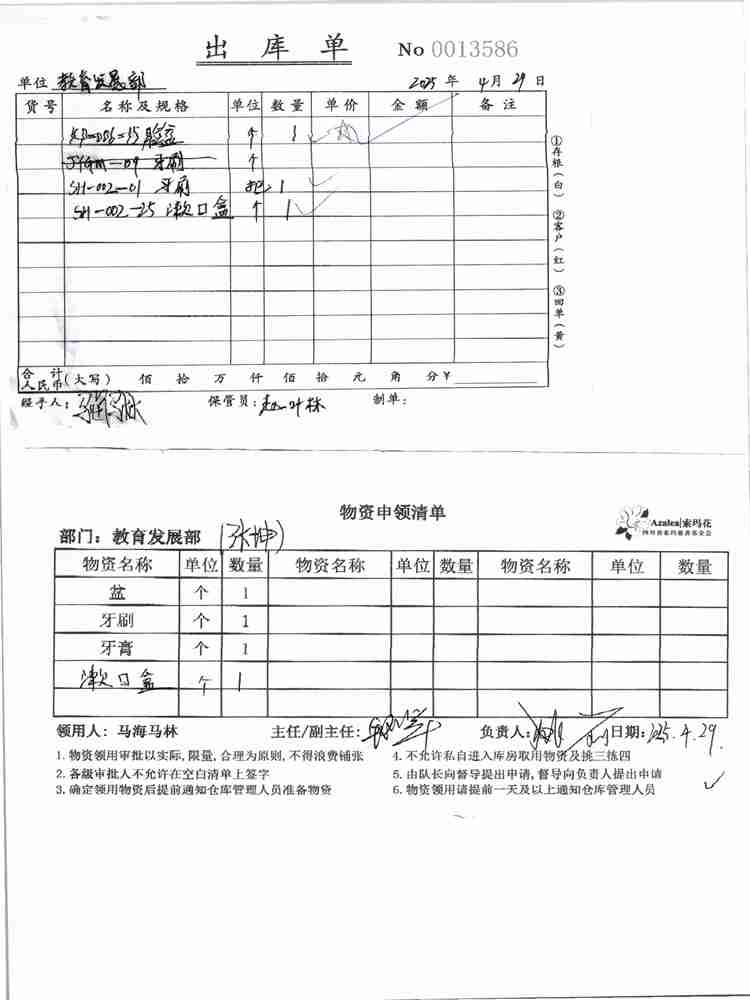 出库单 No 0013586
单位 教育发展部 2025 年 4 月 29 日
货号 名称及规格 单位 数量 单价 金额 备注
脸盆 个 1
牙刷 个
SH-002-01 牙刷 把 1
SH-002-25 漱口盒 个 1
①存根(白) ②客户(红) ③回单(黄)
合计人民币(大写) 佰 拾 万 仟 佰 拾 元 角 分 ¥
经手人:
保管员:
制单:
物资申领清单
Azalea|索玛花
四川省索玛慈善基金会
部门:教育发展部 (张坤)
物资名称 单位 数量 物资名称 单位 数量 物资名称 单位 数量
盆 个 1
牙刷 个 1
牙膏 个 1
漱口盒 个 1
领用人:马海马林 主任/副主任: 负责人: 日期: 25.4.29.
1.物资领用审批以实际,限量,合理为原则,不得浪费铺张
2.各级审批人不允许在空白清单上签字
3.确定领用物资后提前通知仓库管理人员准备物资
4.不允许私自进入库房取用物资及挑三拣四
5.由队长向督导提出申请,督导向负责人提出申请
6.物资领用请提前一天及以上通知仓库管理人员